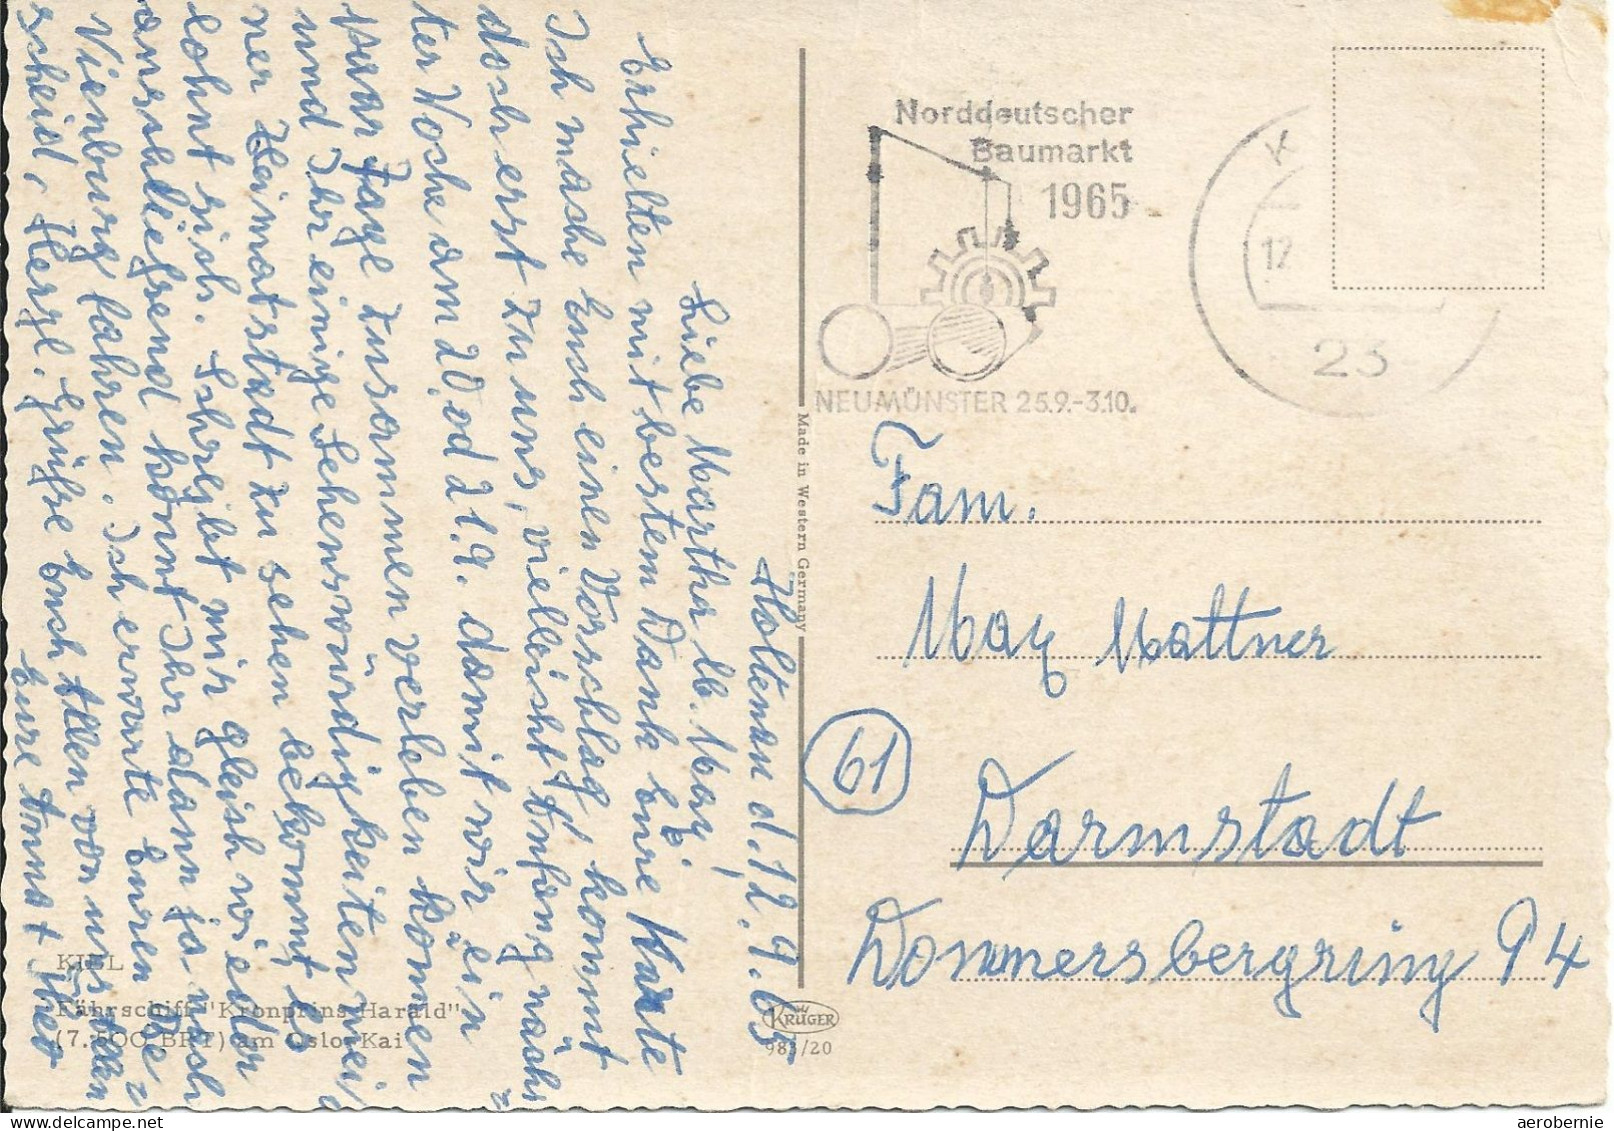 Holtenau d. 12.9.65
Liebe Martha lb. Max,
Erhielten mit bestem Dank Eure Karte
Ich mache Euch einen Vorschlag, kommt
doch erst zu uns, vielleicht Anfang näch-
ster Woche am 20. od 21.9. damit wir ein
paar Tage zusammen verleben können
und Ihr einige Sehenswürdigkeiten mei-
ner Heimatstadt zu sehen bekommt, es
lohnt sich. Schreibt mir gleich wieder
anschließend könnt Ihr dann ja nach
Vienenburg fahren. Ich erwarte Euren Be-
scheid. Herzl. Grüße Euch Allen von uns Allen
Eure Anna +
KIEL
Fährschiff "Kronprins Harald"
(7.500 BRT) am Oslo-Kai
Made in Western Germany
KRÜGER
983/20
Norddeutscher
Baumarkt
1965
NEUMÜNSTER 25.9.-3.10.
K
12
23
Fam.
Max Mattner
61
Darmstadt
Dommersbergring 94
aerobernie